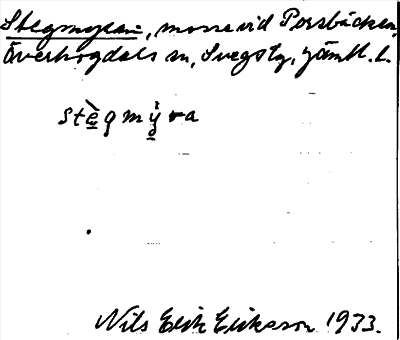 Stegmyran, mosse vid Porsbäcken,
Överhogdals sn, Svegs tg, Jämtl. l.
stègmỳra
Nils Erik Eriksson 1933.